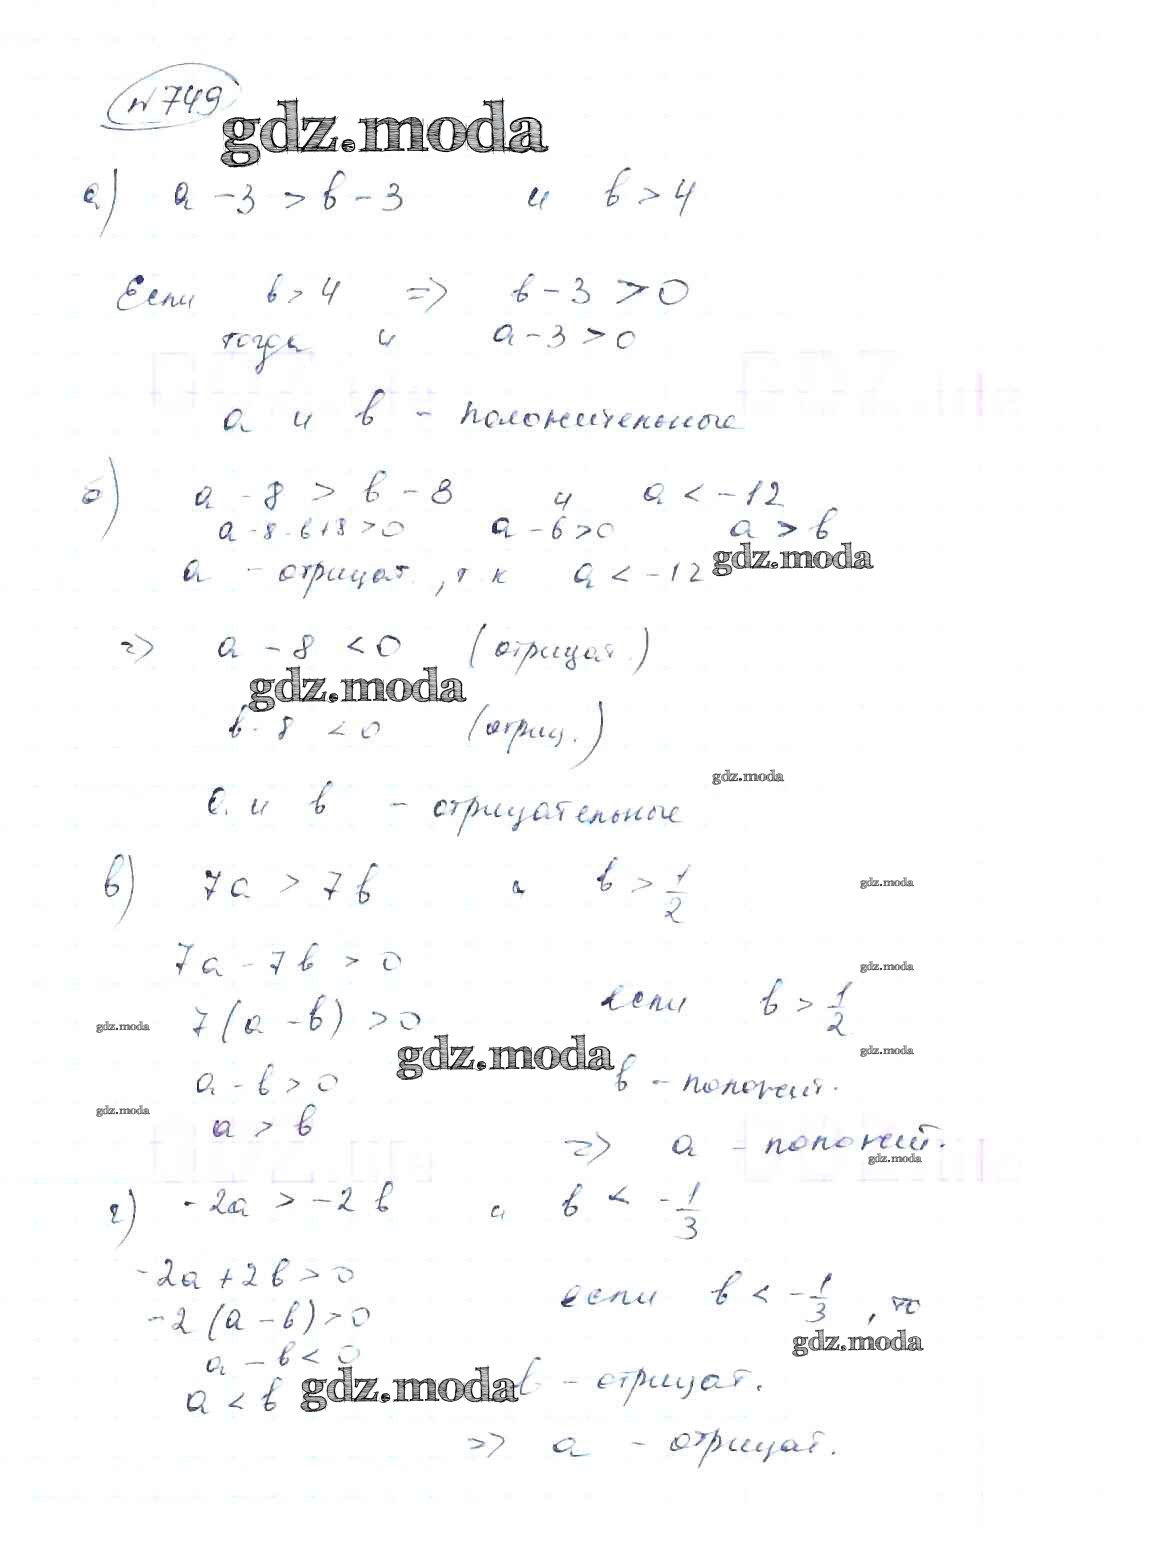 № 749
gdz.moda
а) a - 3 > b - 3 и b > 4
Если b > 4 => b - 3 > 0
тогда и a - 3 > 0
a и b - положительные
б) a - 8 > b - 8 и a < -12
a - 8 - b + 8 > 0 a - b > 0 a > b
gdz.moda
a - отрицат., т.к a < -12
=> a - 8 < 0 (отрицат.)
gdz.moda
b - 8 < 0 (отриц.)
gdz.moda
a и b - отрицательные
в) 7a > 7b и b > 1/2
gdz.moda
7a - 7b > 0
gdz.moda
7(a - b) > 0 если b > 1/2
gdz.moda
gdz.moda
gdz.moda
a - b > 0 b - положит.
gdz.moda
a > b
=> a - положит.
gdz.moda
г) -2a > -2b и b < -1/3
-2a + 2b > 0
если b < -1/3, то
-2(a - b) > 0
gdz.moda
a - b < 0
a < b gdz.moda b - отрицат.
=> a - отрицат.